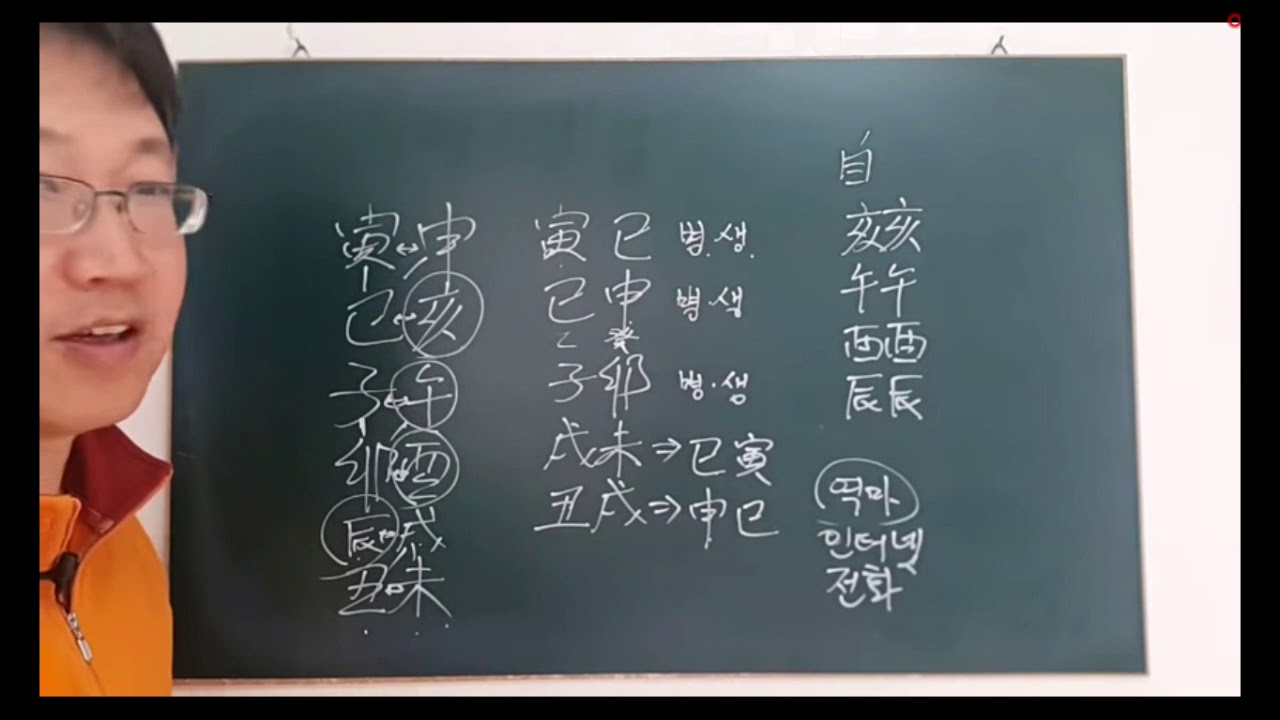 寅↔申
巳↔亥
子↔午
卯↔酉
辰↔戌
丑↔未
寅 巳 병.생.
巳 申 병.생
乙 癸
子 卯 병.생
戌未⇒巳寅
丑戌⇒申巳
自
亥亥
午午
酉酉
辰辰
역마
인터넷
전화